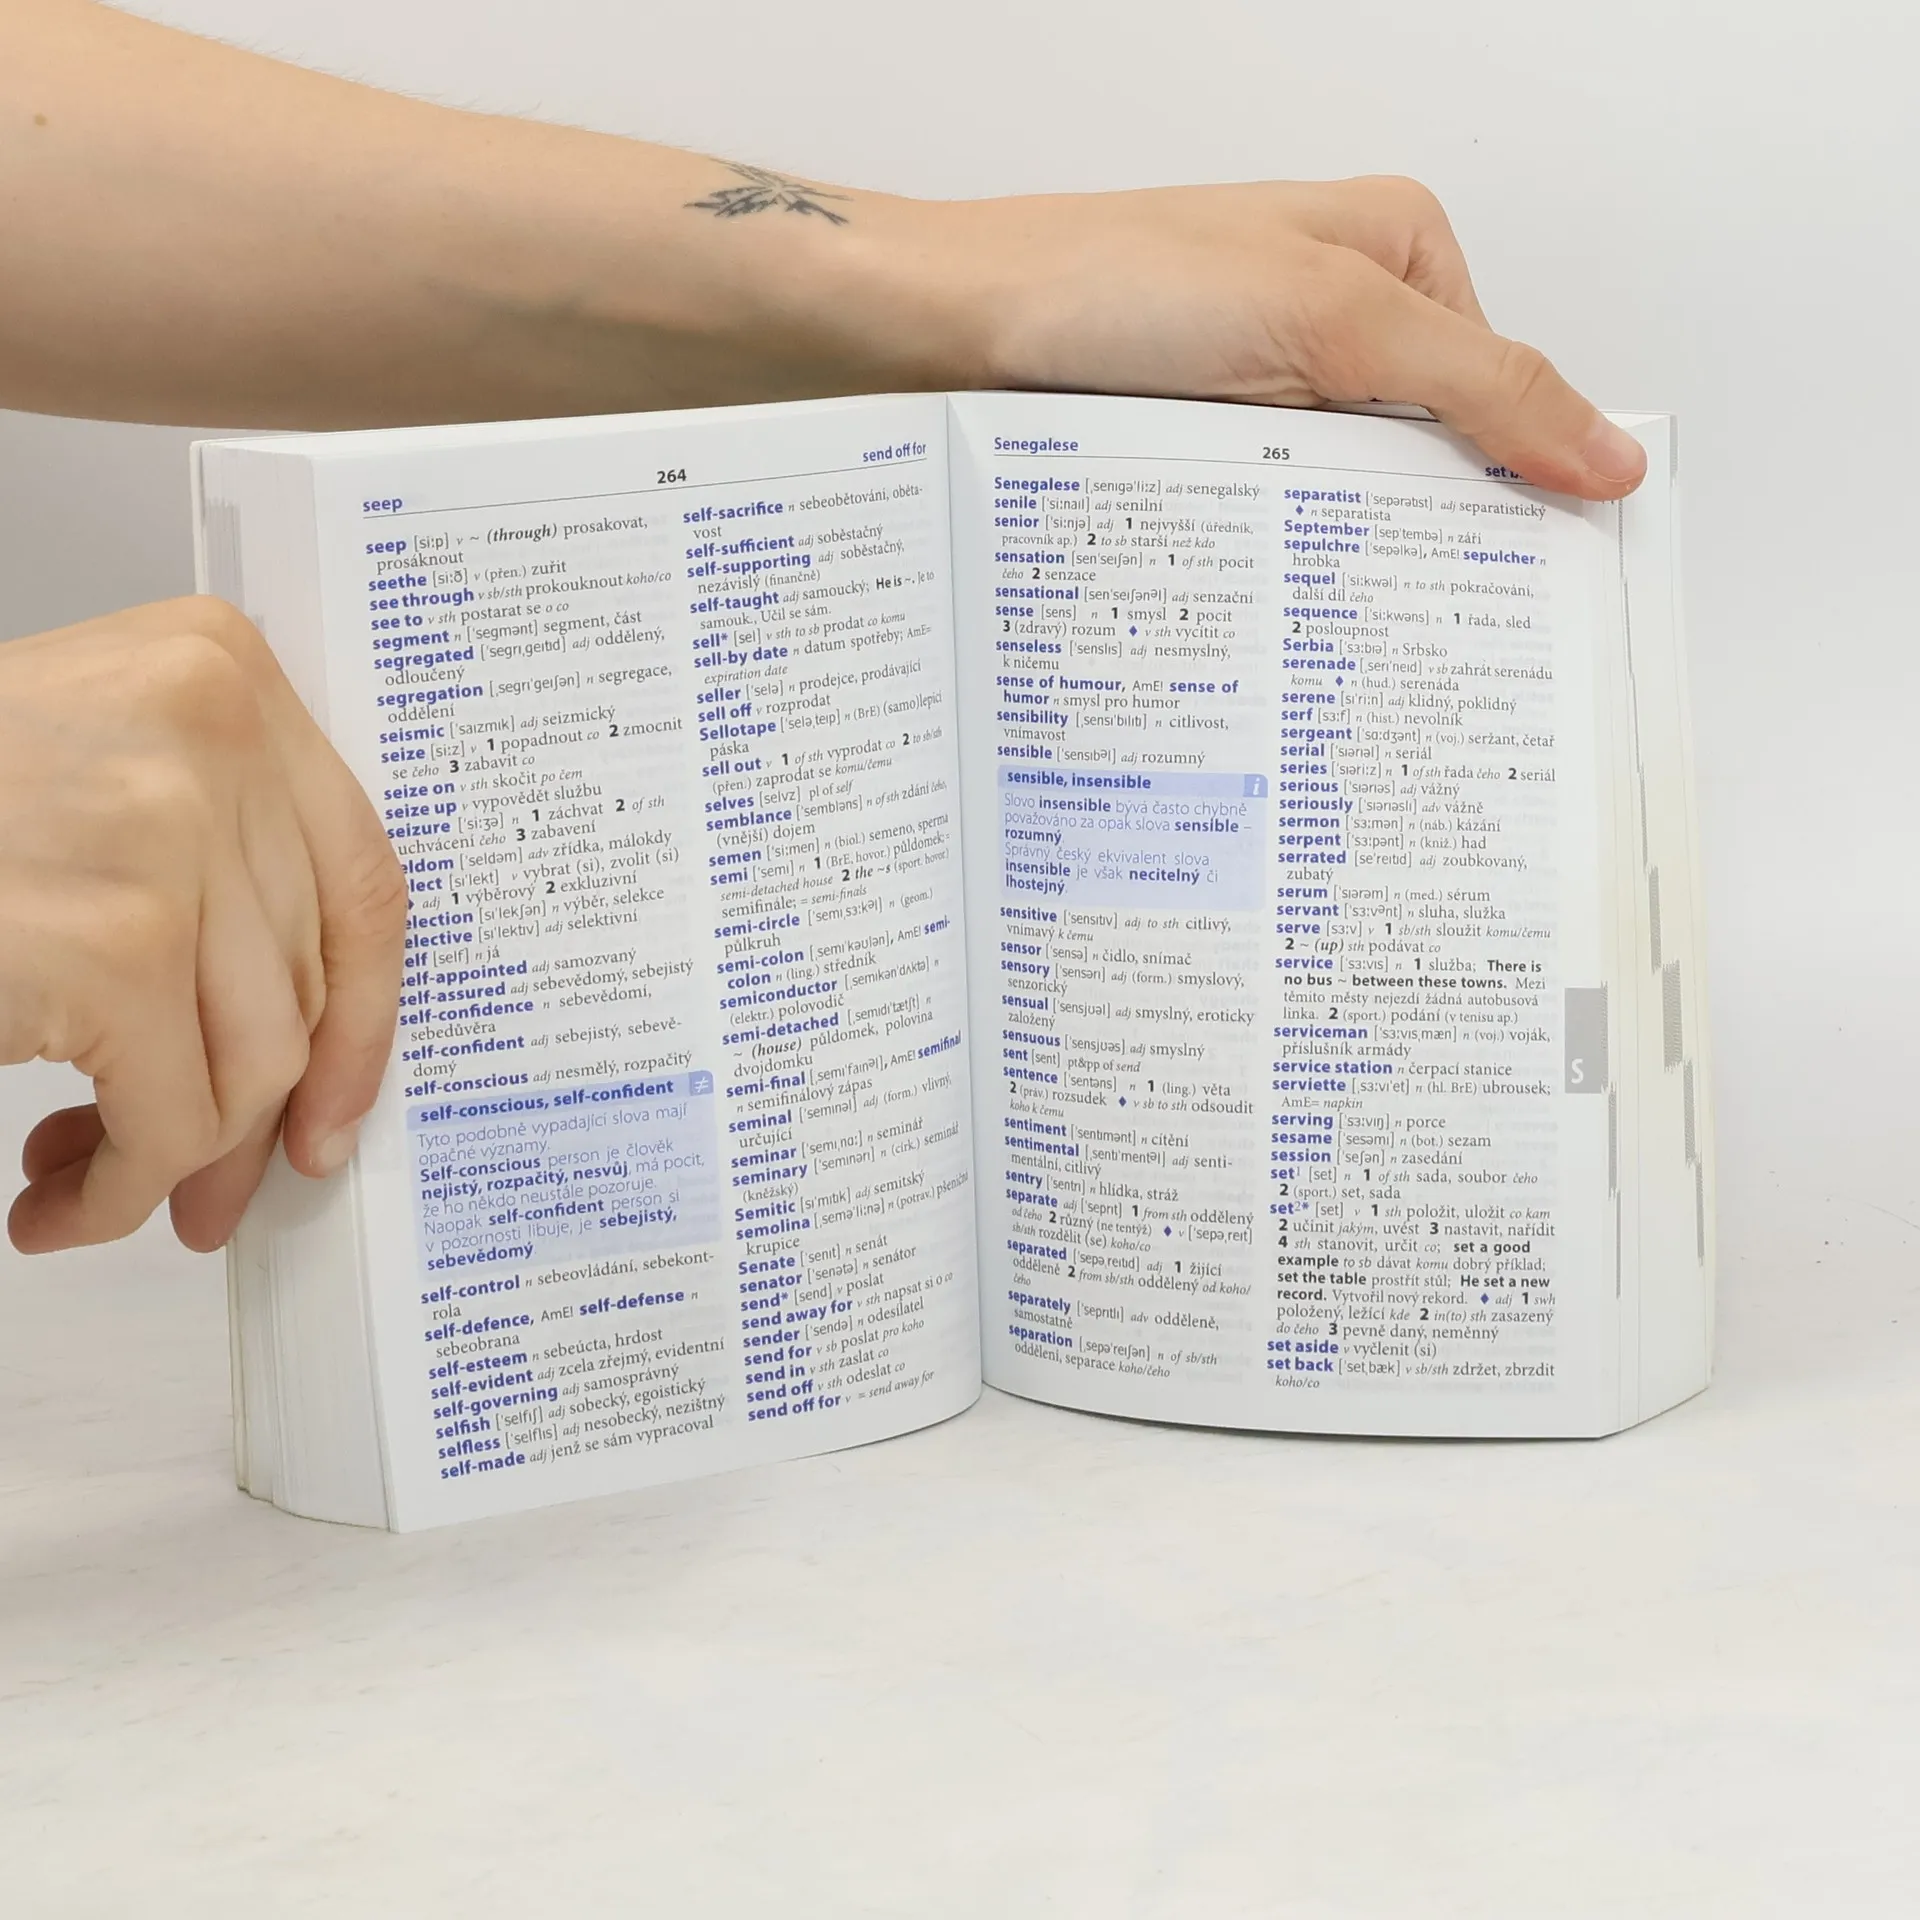 seep
264
send off for
seep [si:p] v ~ (through) prosakovat,
prosáknout
seethe [si:ð] v (přen.) zuřit
see through v sb/sth prokouknout koho/co
see to v sth postarat se o co
segment n ['segmənt] segment, část
segregated ['segrɪˌgeɪtɪd] adj oddělený,
odloučený
segregation [ˌsegrɪ'geɪʃən] n segregace,
oddělení
seismic ['saɪzmɪk] adj seizmický
seize [si:z] v 1 popadnout co 2 zmocnit
se čeho 3 zabavit co
seize on v sth skočit po čem
seize up v vypovědět službu
seizure ['si:ʒə] n 1 záchvat 2 of sth
uchvácení čeho 3 zabavení
eldom ['seldəm] adv zřídka, málokdy
lect [sɪ'lekt] v vybrat (si), zvolit (si)
♦ adj 1 výběrový 2 exkluzivní
election [sɪ'lekʃən] n výběr, selekce
elective [sɪ'lektɪv] adj selektivní
elf [self] n já
elf-appointed adj samozvaný
self-assured adj sebevědomý, sebejistý
self-confidence n sebevědomí,
sebedůvěra
self-confident adj sebejistý, sebevě-
domý
self-conscious adj nesmělý, rozpačitý
self-conscious, self-confident ≠
Tyto podobně vypadající slova mají
opačné významy.
Self-conscious person je člověk
nejistý, rozpačitý, nesvůj, má pocit,
že ho někdo neustále pozoruje.
Naopak self-confident person si
v pozornosti libuje, je sebejistý,
sebevědomý
self-control n sebeovládání, sebekont-
rola
self-defence, AmE! self-defense n
sebeobrana
self-esteem n sebeúcta, hrdost
self-evident adj zcela zřejmý, evidentní
self-governing adj samosprávný
selfish ['selfɪʃ] adj sobecký, egoistický
selfless ['selflɪs] adj nesobecký, nezištný
self-made adj jenž se sám vypracoval
self-sacrifice n sebeobětování, oběta-
vost
self-sufficient adj soběstačný
self-supporting adj soběstačný,
nezávislý (finančně)
self-taught adj samoucký; He is ~. Je to
samouk., Učil se sám.
sell* [sel] v sth to sb prodat co komu
sell-by date n datum spotřeby; AmE=
expiration date
seller ['selə] n prodejce, prodávající
sell off v rozprodat
Sellotape ['seləˌteɪp] n (BrE) (samo)lepicí
páska
sell out v 1 of sth vyprodat co 2 to sb/sth
(přen.) zaprodat se komu/čemu
selves [selvz] pl of self
semblance ['sembləns] n of sth zdání čeho,
(vnější) dojem
semen ['si:men] n (biol.) semeno, sperma
semi ['semɪ] n 1 (BrE, hovor.) půldomek; =
semi-detached house 2 the ~s (sport. hovor.)
semifinále; = semi-finals
semi-circle ['semɪˌsɜ:kəl] n (geom.)
půlkruh
semi-colon [ˌsemɪ'kəʊlən], AmE! semi-
colon n (ling.) středník
semiconductor [ˌsemɪkən'dʌktə] n
(elektr.) polovodič
semi-detached [ˌsemɪdɪ'tætʃt] n
~ (house) půldomek, polovina
dvojdomku
semi-final [ˌsemɪ'faɪnəl], AmE! semifinal
n semifinálový zápas
seminal ['semɪnəl] adj (form.) vlivný,
určující
seminar ['semɪˌnɑ:] n seminář
seminary ['semɪnərɪ] n (círk.) seminář
(kněžský)
Semitic [sɪ'mɪtɪk] adj semitský
semolina [ˌsemə'li:nə] n (potrav.) pšeničná
krupice
Senate ['senɪt] n senát
senator ['senətə] n senátor
send* [send] v poslat
send away for v sth napsat si o co
sender ['sendə] n odesílatel
send for v sb poslat pro koho
send in v sth zaslat co
send off v sth odeslat co
send off for v = send away for
Senegalese
265
set
Senegalese [ˌsenɪgə'li:z] adj senegalský
senile ['si:naɪl] adj senilní
senior ['si:njə] adj 1 nejvyšší (úředník,
pracovník ap.) 2 to sb starší než kdo
sensation [sen'seɪʃən] n 1 of sth pocit
čeho 2 senzace
sensational [sen'seɪʃənəl] adj senzační
sense [sens] n 1 smysl 2 pocit
3 (zdravý) rozum ♦ v sth vycítit co
senseless ['senslɪs] adj nesmyslný,
k ničemu
sense of humour, AmE! sense of
humor n smysl pro humor
sensibility [ˌsensɪ'bɪlɪtɪ] n citlivost,
vnímavost
sensible ['sensɪbəl] adj rozumný
sensible, insensible i
Slovo insensible bývá často chybně
považováno za opak slova sensible –
rozumný.
Správný český ekvivalent slova
insensible je však necitelný či
lhostejný.
sensitive ['sensɪtɪv] adj to sth citlivý,
vnímavý k čemu
sensor ['sensə] n čidlo, snímač
sensory ['sensərɪ] adj (form.) smyslový,
senzorický
sensual ['sensjʊəl] adj smyslný, eroticky
založený
sensuous ['sensjʊəs] adj smyslný
sent [sent] pt&pp of send
sentence ['sentəns] n 1 (ling.) věta
2 (práv.) rozsudek ♦ v sb to sth odsoudit
koho k čemu
sentiment ['sentɪmənt] n cítění
sentimental [ˌsentɪ'mentəl] adj senti-
mentální, citlivý
sentry ['sentrɪ] n hlídka, stráž
separate adj ['seprɪt] 1 from sth oddělený
od čeho 2 různý (ne tentýž) ♦ v ['sepəˌreɪt]
sb/sth rozdělit (se) koho/co
separated ['sepəˌreɪtɪd] adj 1 žijící
odděleně 2 from sb/sth oddělený od koho/
čeho
separately ['seprɪtlɪ] adv odděleně,
samostatně
separation [ˌsepə'reɪʃən] n of sb/sth
oddělení, separace koho/čeho
separatist ['sepərətɪst] adj separatistický
♦ n separatista
September [sep'tembə] n září
sepulchre ['sepəlkə], AmE! sepulcher n
hrobka
sequel ['si:kwəl] n to sth pokračování,
další díl čeho
sequence ['si:kwəns] n 1 řada, sled
2 posloupnost
Serbia ['sɜ:bɪə] n Srbsko
serenade [ˌserɪ'neɪd] v sb zahrát serenádu
komu ♦ n (hud.) serenáda
serene [sɪ'ri:n] adj klidný, poklidný
serf [sɜ:f] n (hist.) nevolník
sergeant ['sɑ:dʒənt] n (voj.) seržant, četař
serial ['sɪərɪəl] n seriál
series ['sɪəri:z] n 1 of sth řada čeho 2 seriál
serious ['sɪərɪəs] adj vážný
seriously ['sɪərɪəslɪ] adv vážně
sermon ['sɜ:mən] n (náb.) kázání
serpent ['sɜ:pənt] n (kniž.) had
serrated [se'reɪtɪd] adj zoubkovaný,
zubatý
serum ['sɪərəm] n (med.) sérum
servant ['sɜ:vənt] n sluha, služka
serve [sɜ:v] v 1 sb/sth sloužit komu/čemu
2 ~ (up) sth podávat co
service ['sɜ:vɪs] n 1 služba; There is
no bus ~ between these towns. Mezi
těmito městy nejezdí žádná autobusová
linka. 2 (sport.) podání (v tenisu ap.)
serviceman ['sɜ:vɪsˌmæn] n (voj.) voják,
příslušník armády
service station n čerpací stanice
serviette [ˌsɜ:vɪ'et] n (hl. BrE) ubrousek;
AmE= napkin
serving ['sɜ:vɪŋ] n porce
sesame ['sesəmɪ] n (bot.) sezam
session ['seʃən] n zasedání
set¹ [set] n 1 of sth sada, soubor čeho
2 (sport.) set, sada
set²* [set] v 1 sth položit, uložit co kam
2 učinit jakým, uvést 3 nastavit, nařídit
4 sth stanovit, určit co; set a good
example to sb dávat komu dobrý příklad;
set the table prostřít stůl; He set a new
record. Vytvořil nový rekord. ♦ adj 1 swh
položený, ležící kde 2 in(to) sth zasazený
do čeho 3 pevně daný, neměnný
set aside v vyčlenit (si)
set back ['setˌbæk] v sb/sth zdržet, zbrzdit
koho/co
S